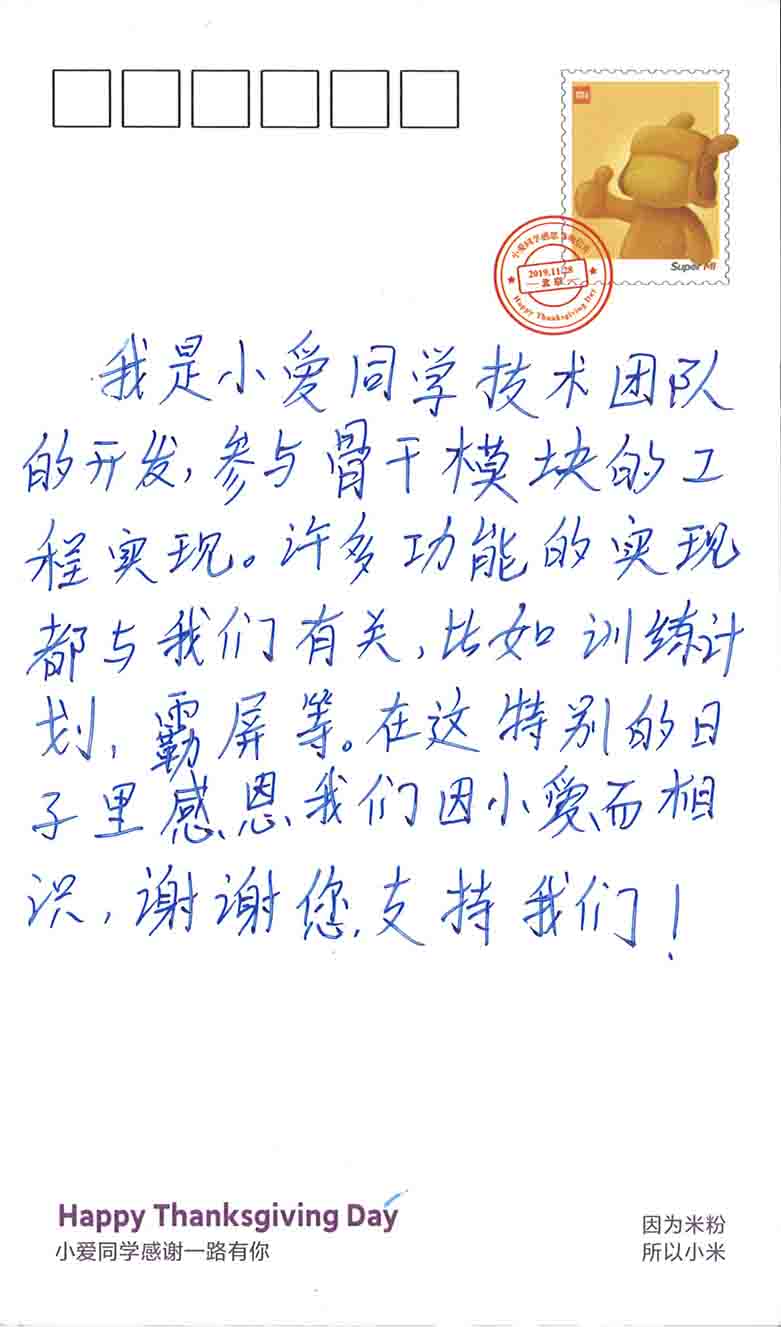 小爱同学感恩节明信片
2019.11.28
北京
Happy Thanksgiving Day
Super MI
我是小爱同学技术团队
的开发,参与骨干模块的工
程实现。许多功能的实现
都与我们有关,比如训练计
划,霸屏等。在这特别的日
子里感恩我们因小爱而相
识,谢谢您支持我们!
Happy Thanksgiving Day
小爱同学感谢一路有你
因为米粉
所以小米